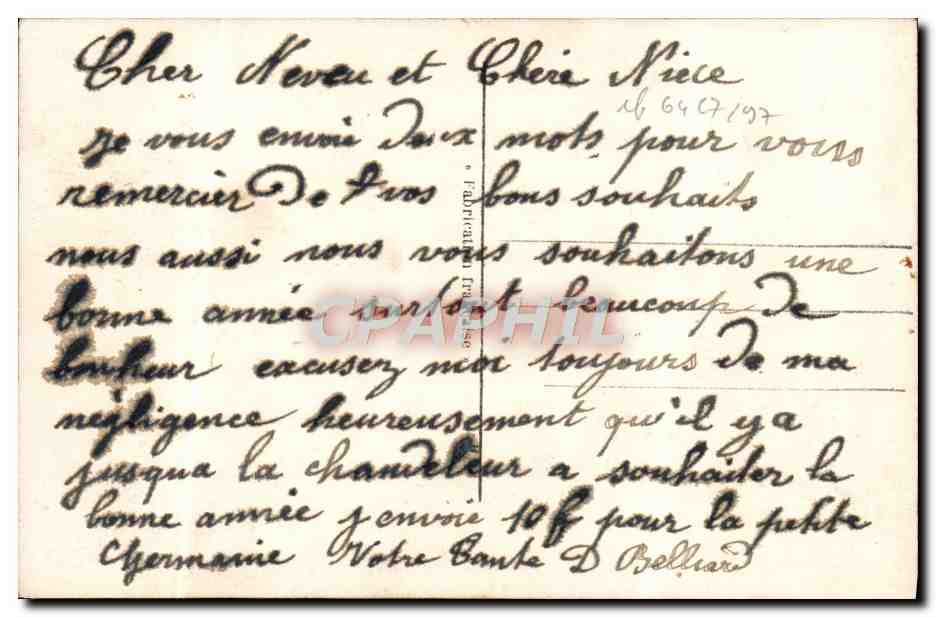 Cher Neveu et Chère Niece
je vous envoie deux mots pour vous
remercier de vos bons souhaits
nous aussi nous vous souhaitons une
bonne année surtout beaucoup de
bonheur excusez moi toujours de ma
négligence heureusement qu'il y a
jusqua la chandeleur a souhaiter la
bonne année j envoie 10 f pour la petite
Germaine Votre Tante D Belliard
" Fabrication française "
CPAPHIL